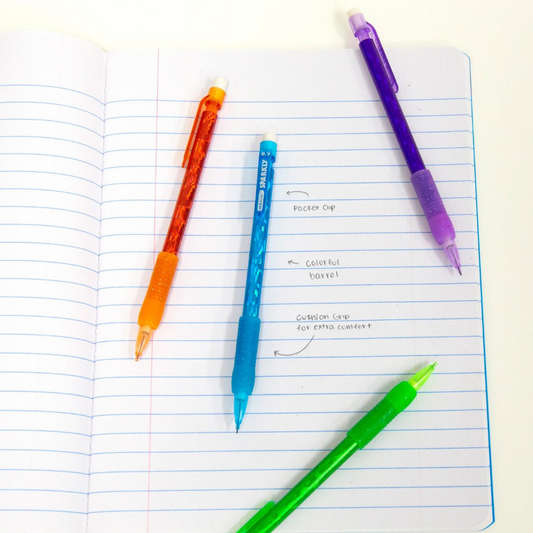 SPARKLY
Pocket Cup
Colorful
barrel
Cushion Grip
for extra comfort